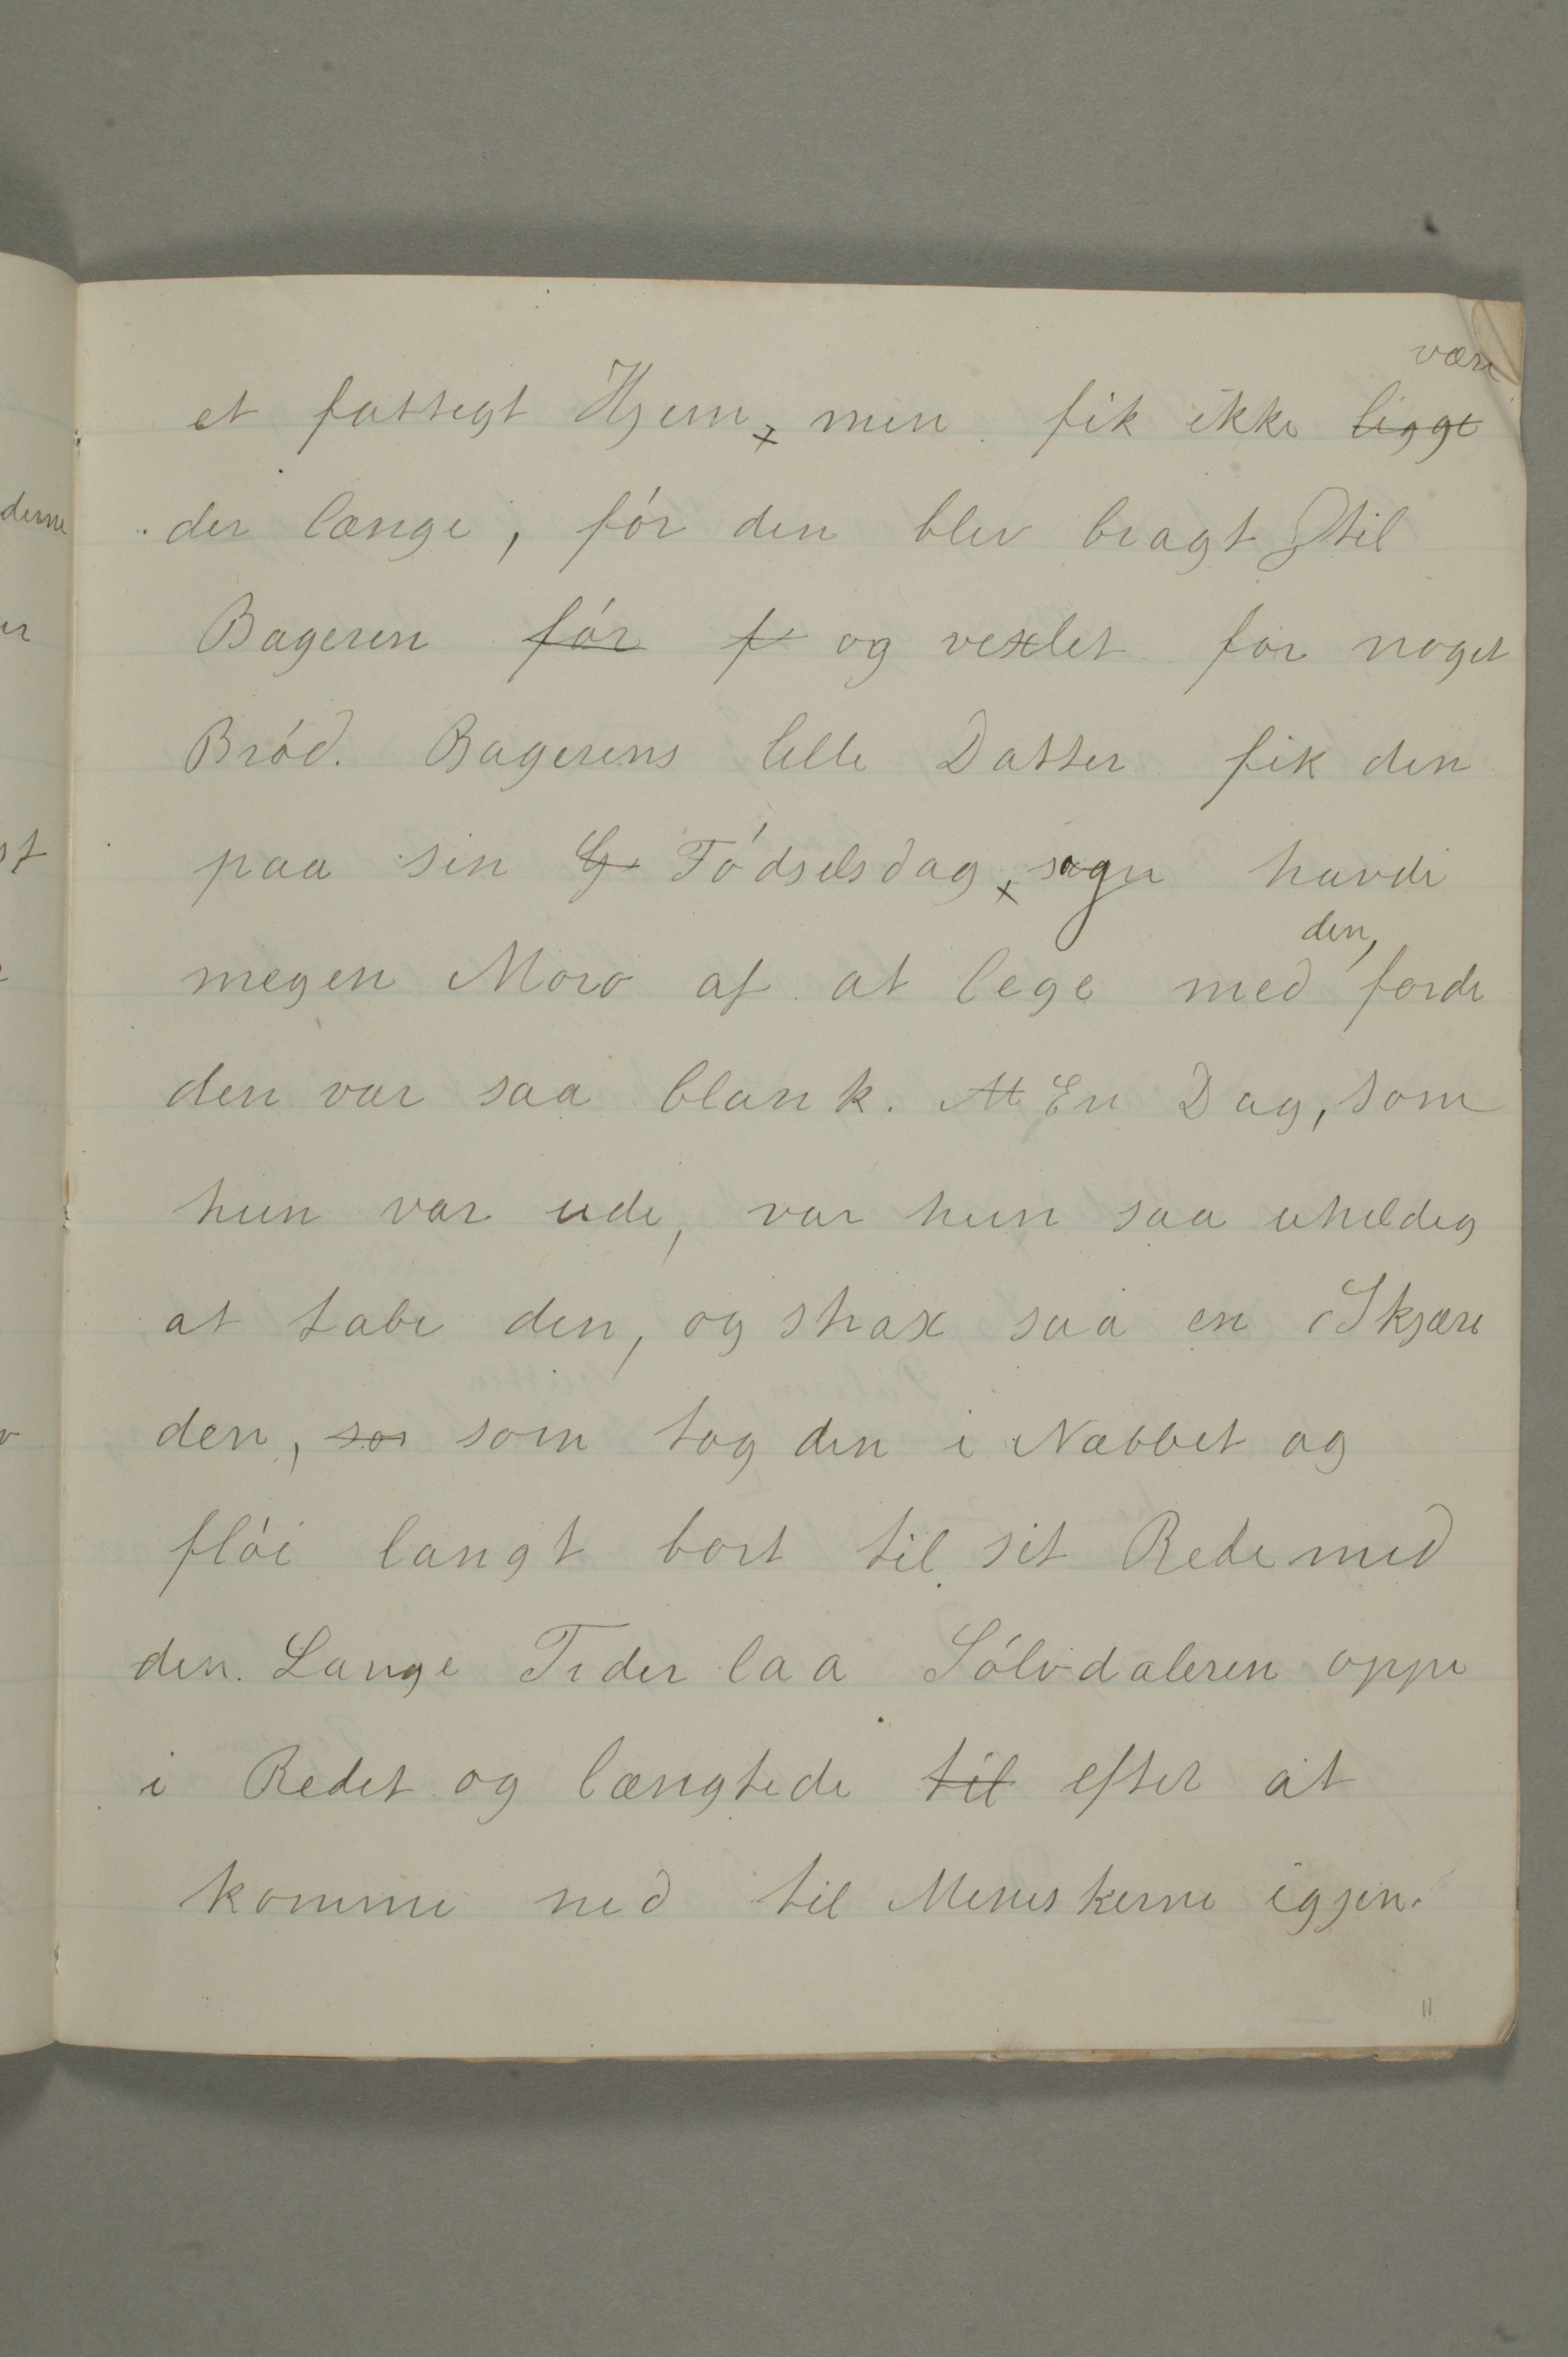 være
et fattigt Hjem, men fik ikke ligge
der længe, før den blev bragt til
Bageren før f og vexlet for noget
Brød. Bagerens lille Datter fik den
paa sin G Fødselsdag, og havde
den,
megen Moro af at lege med fordi
den var saa blank. M En Dag, som
hun var ude, var hun saa uheldig
at tabe den, og strax saa en Skjære
den, sos som tog den i Næbbet og
fløi langt bort til sit Rede med
den. Lange Tider laa Sølvdaleren oppe
i Redet og længtede til efter at
komme ned til Meneskerne igjen.
11
denne
er
st